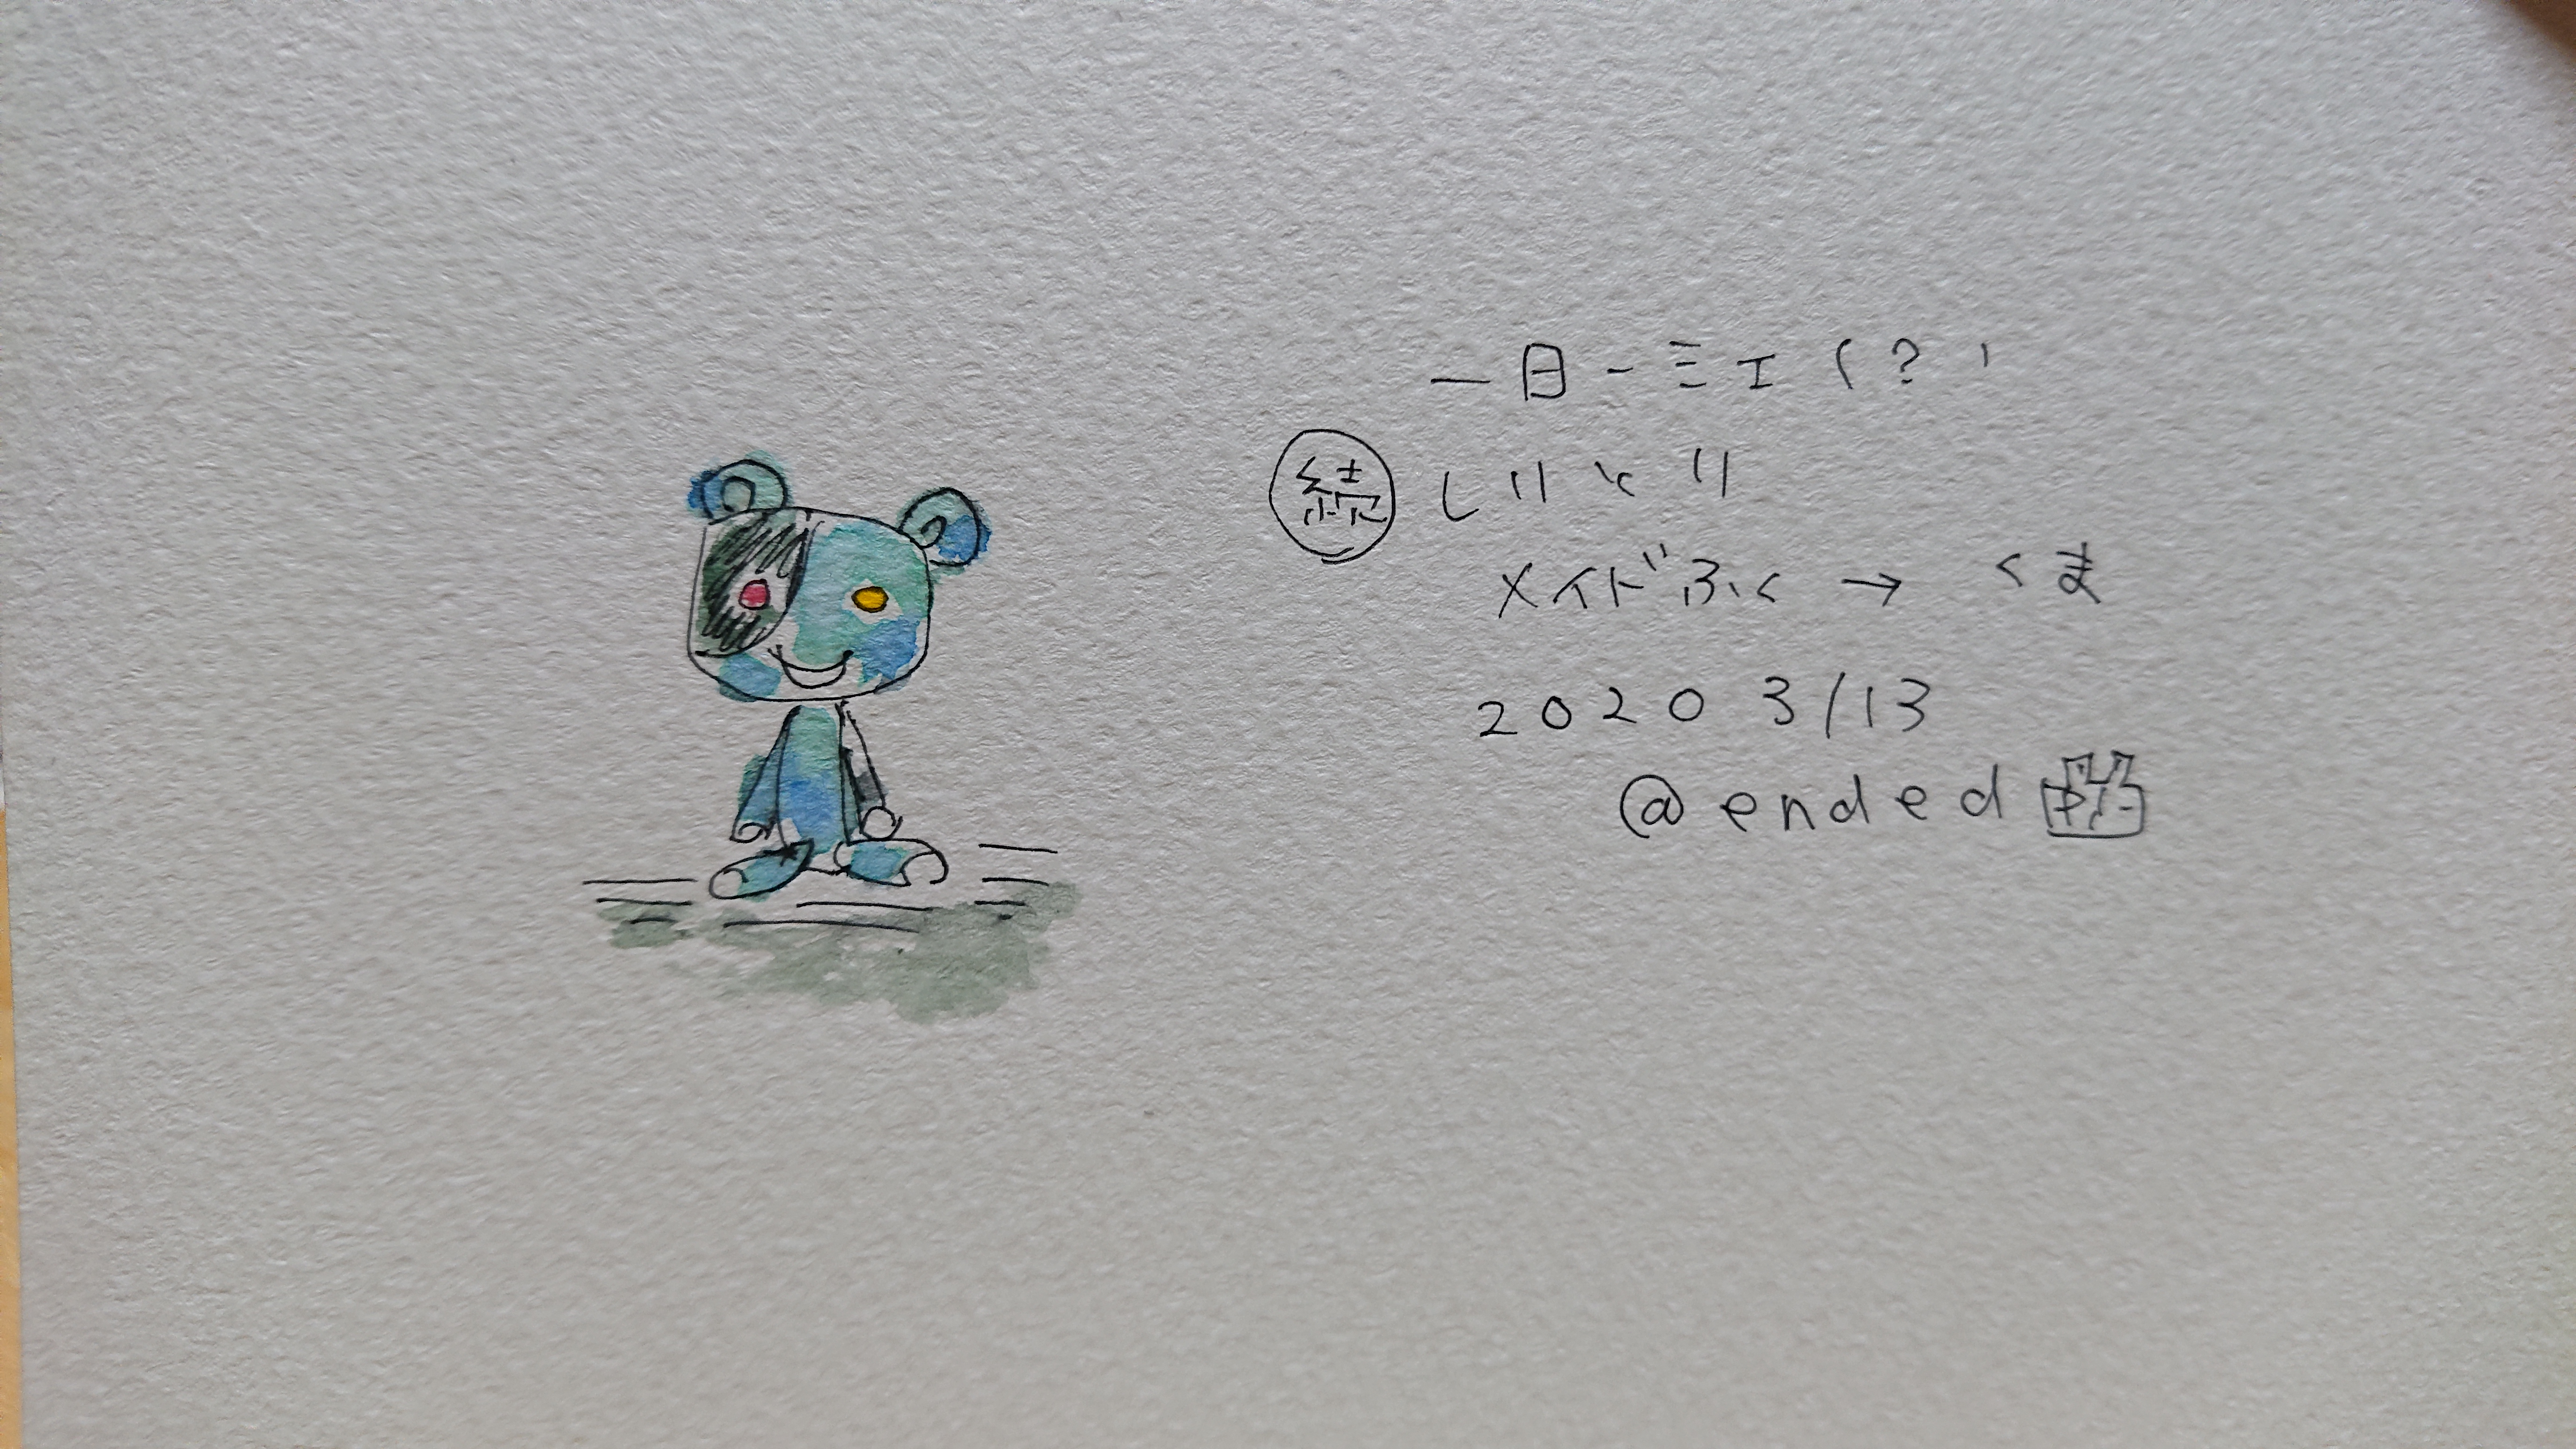 一日一ミエ(?)
続 しりとり
メイドふく → くま
2020 3/13
@ended